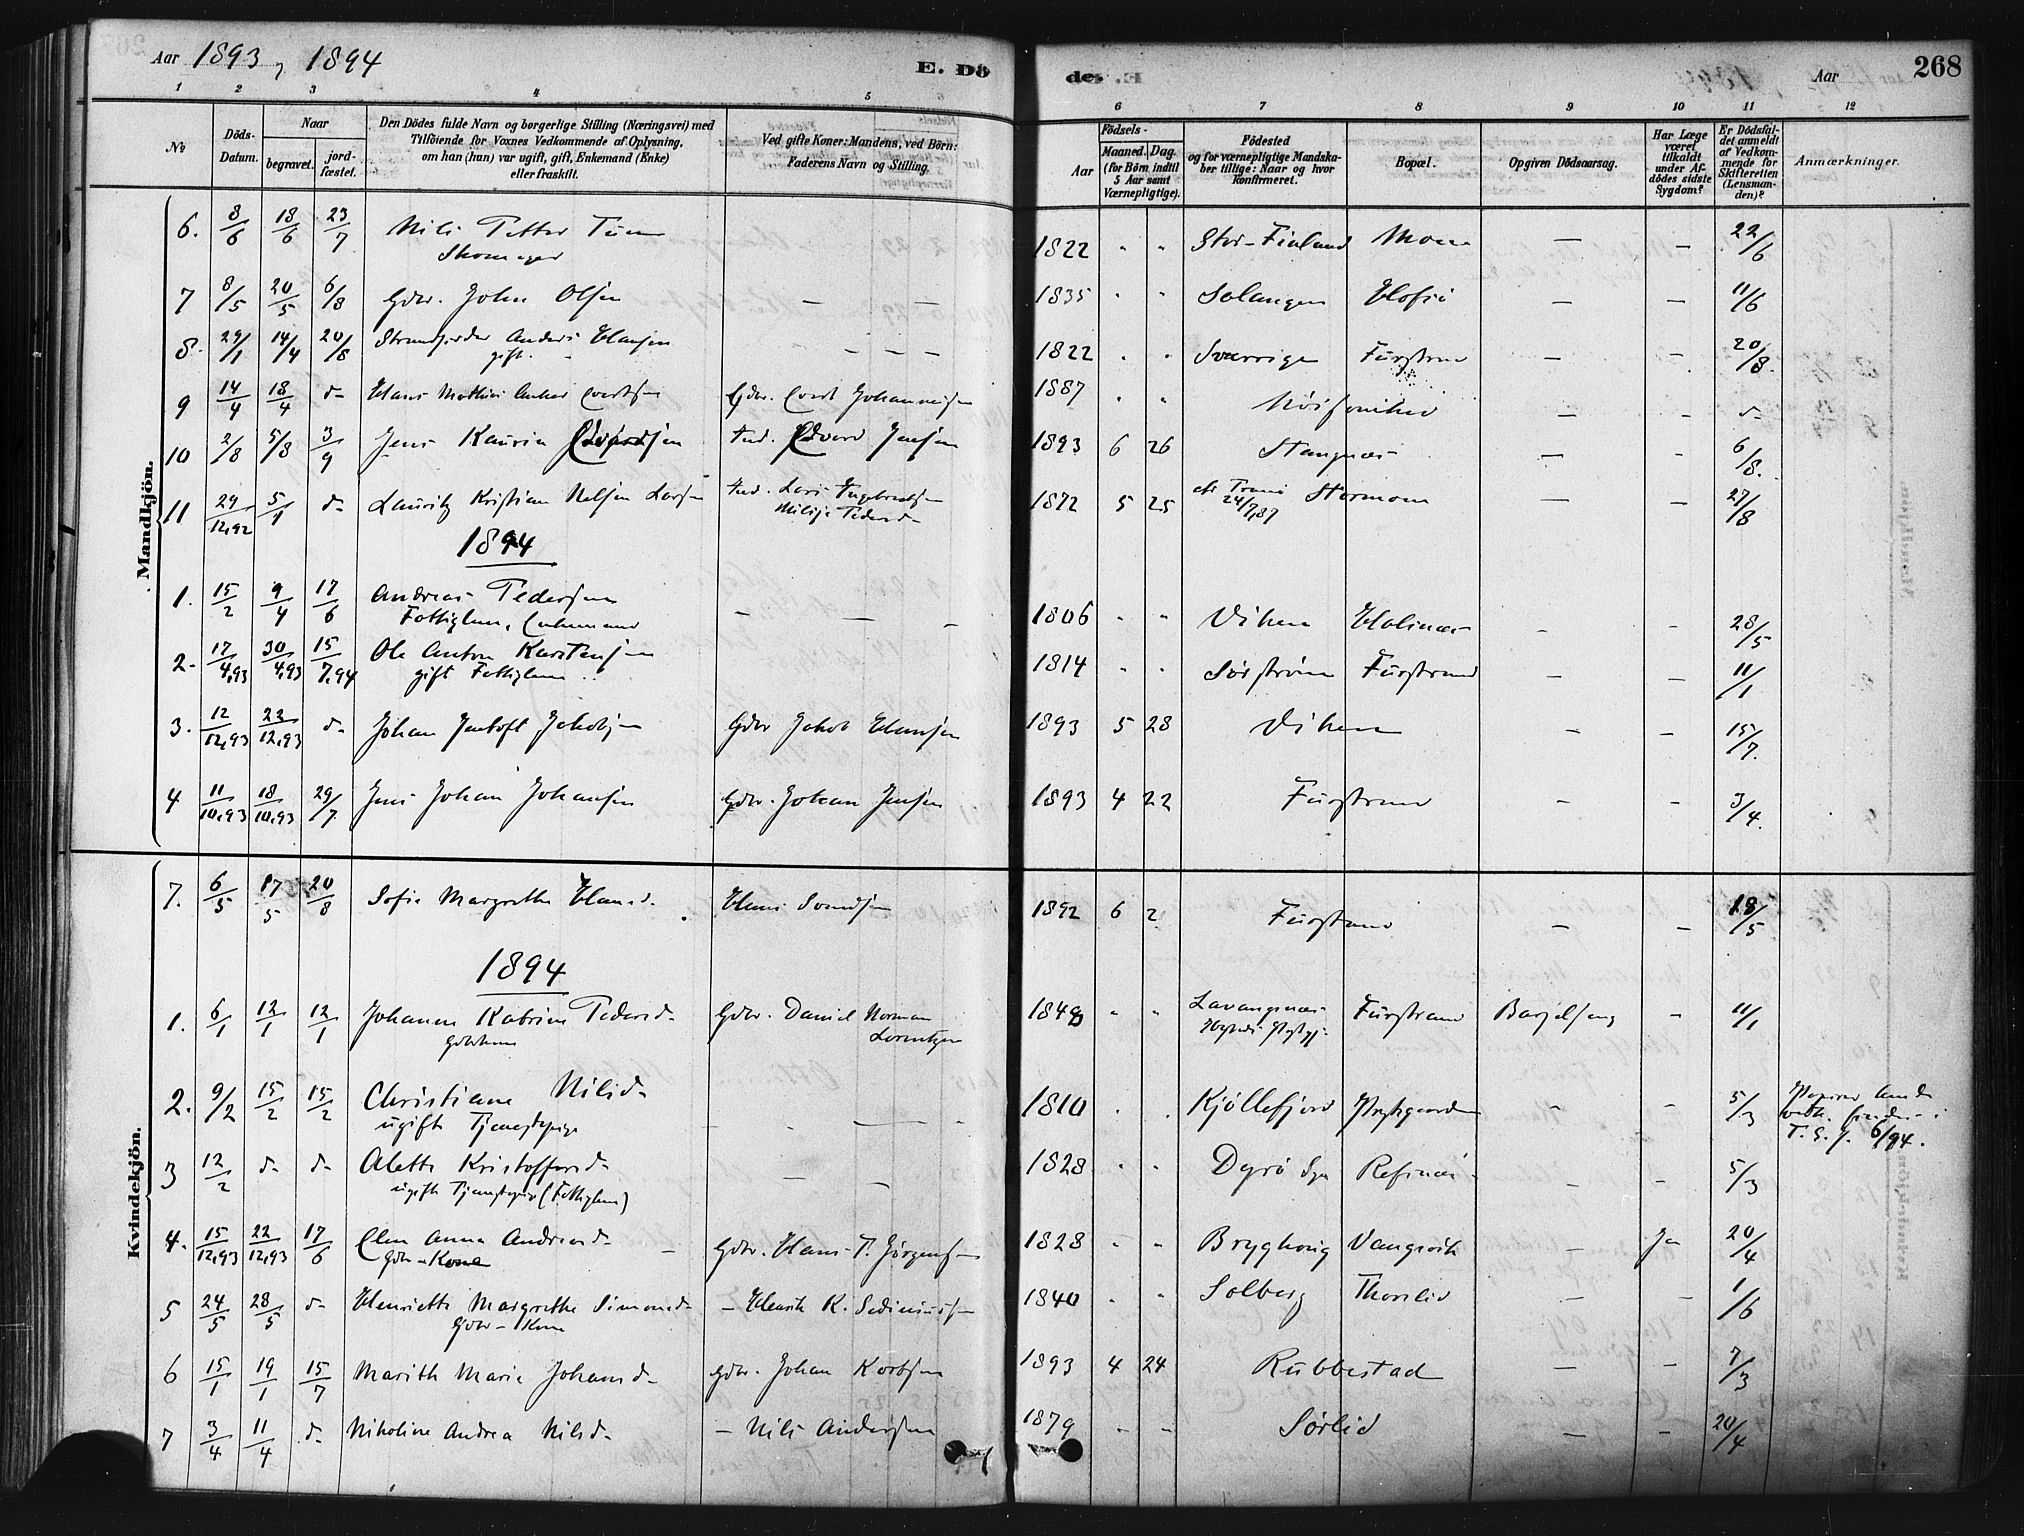 Aar 1893, 1894
E. Dö
de. E.
Aar
268
1 2 3 4 5 6 7 8 9 10 11 12
No
Döds-Datum.
Naar
begravet.
jord-fæstet.
Den Dödes fulde Navn og borgerlige Stilling (Næringsvei) med
Tilföiende for Voxnes Vedkommende af Oplysning,
om han (hun) var ugift, gift, Enkemand (Enke)
eller fraskilt.
Ved gifte Koner: Mandens, ved Börn:
Faderens Navn og Stilling.
Födsels-
Aar
Maaned. Dag.
(for Börn indtil
5 Aar samt
Værnepligtige).
Födested
og for værnepligtige Mandska-
ber tillige: Naar og hvor
Konfirmeret.
Bopæl.
Opgiven Dödsaarsag.
Har Læge
været
tilkaldt
under Af-
dödes sidste
Sygdom?
Er Dödsfal-
det anmeldt
af Vedkom-
mende for
Skifteretten
(Lensman-
den)?
Anmærkninger.
Mandkjön.
6. 8/6 18/6 23/7 Nils Petter 1822 " " Stor-Finland Moen — — 22/6
Skomager
7 8/5 20/5 6/8 Gdbr. John Olsen — — 1835 " " Salangen — — 11/6
8. 29/1 14/4 20/8 Anders Hansen — — — 1822 " " Sverrige Furstrand — — 20/8
gift.
9 14/4 18/4 d- Hans Mathias Anker Evertsen Gdbr. Evert Johannesen 1887 " " — — d-
10 2/8 5/8 3/9 Jens Kaurin Edvardsen Ind. Edvard Jensen 1893 6 26 Stangnæs — — 6/8.
11 29/12,92 5/1 d- Lauritz Kristian Larsen Ind. Lars Ingebrectsen 1872 5 25 24/7,87 Stormoen — — 27/8
1894
1. 15/2 9/4 17/6 Andreas Pedersen — — — 1806 " " Viken — — 28/5
Fattiglem, Enkemand
2. 17/4,93 30/4,93 15/7,94 Ole Anton Karstensen 1814 " " Sørstrømen Furstrand — — 11/1
gift Fattiglem
3. 12/12,93 22/12,93 d- Johan Jentoft Jakobsen Gdbr Jakob Hansen 1893 5 28 Viken — — 15/7.
4 11/10,93 18/10,93 29/7. Jens Johan Johansen Gdbr. Johan Jensen 1893 4 22 Furstrand — — 3/4.
Kvindekjön.
7. 6/5 17/5 20/8 Sofie Margrethe Hansd. Hans 1892 6 2 Furstrand — — 18/5
1894
1. 6/1 12/1 12/1 Johanna Katrine Pedersd. Gdbr. Daniel Norman 1849 " " Lavangsnæs Furstrand Barselseng " 11/1
Lorentzen
2. 9/2 15/2 15/2 Christiane Nilsd. — — — 1810 " " Kjøllefjord Præstgaarden — — 5/3
ugift Tjenestepige
T. S. J. 6/94.
3 12/2 d- d- Aletta Kristoffersd. — — 1828 " " Dyrø Refsnæs — — 5/3
ugift Tjenestepige (Fattiglem)
4. 15/12,93 22/12,93 17/6 Elen Anna Andreasd. Gdbr. Hans T. Jörgensen 1828 " " Bryghaug Vangsvik — Ja 20/4
Gdbr-Kone
5 24/5 28/5 d- Henriette Margrethe Simonsd. — Henrik K. 1840 " " Solberg Thorslid — — 1/6
Gdbr-Kone
6 15/1 19/1 15/7 Marith Marie Johansd. Gdbr. Johan 1893 4 24 Rubbestad — — 7/3
7 3/4 11/4 d- Nikoline Andrea Nilsd. — Nils Andersen 1879 " " Sørlid — — 20/4